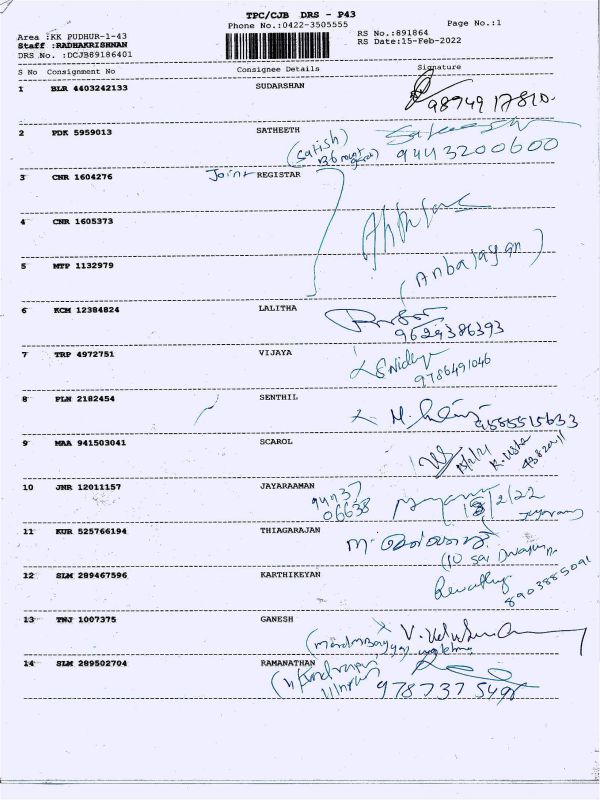 TPC/CJB DRS - P43
Phone No.:0422-3505555
Page No.:1
Area :KK PUDHUR-1-43
RS No.:891864
Staff :RADHAKRISHNAN
RS Date:15-Feb-2022
DRS No. :DCJB89186401
S No Consignment No Consignee Details Signature
1 BLR 4403242133 SUDARSHAN
9894917810
2 PDK 5959013 SATHEETH
(Satish)
9443200600
3 CNR 1604276 Joint REGISTAR
4 CNR 1605373
5 MTP 1132979
(Anbalagan)
6 KCM 12384824 LALITHA
9629386393
7 TRP 4972751 VIJAYA
9786491046
8 PLN 2182454 SENTHIL
9585515633
9 MAA 941503041 SCAROL
K. Usha
10 JNR 12011157 JAYARAAMAN
94437
06638
2/22
11 KUR 525766194 THIAGARAJAN
12 SLM 289467596 KARTHIKEYAN
Revathy
8903885091
13 TNJ 1007375 GANESH
14 SLM 289502704 RAMANATHAN